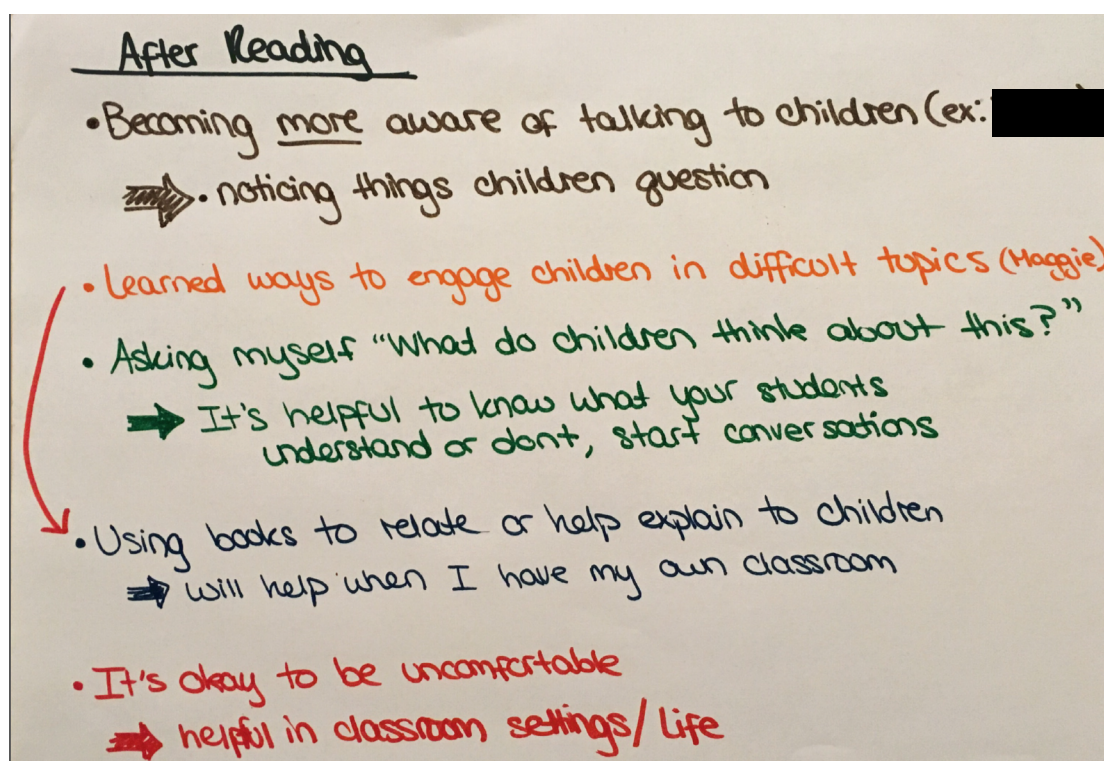 After Reading
• Becoming more aware of talking to children (ex:
• noticing things children question
• Learned ways to engage children in difficult topics (Maggie)
• Asking myself "What do children think about this?"
It's helpful to know what your students
understand or dont, start conversations
• Using books to relate or help explain to children
will help when I have my own classroom
• It's okay to be uncomfortable
helpful in classroom settings/Life